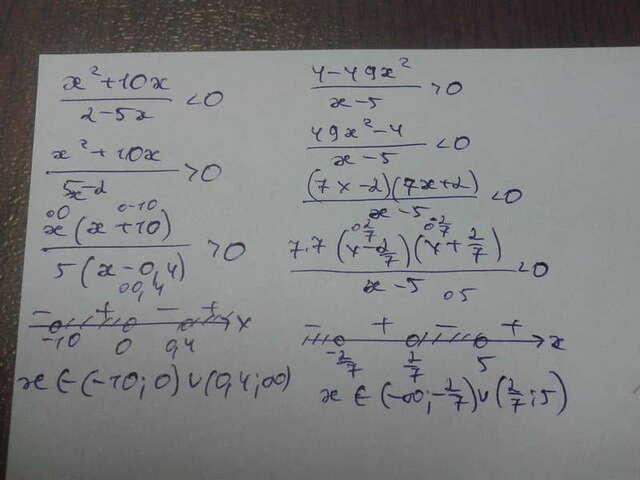 (x²+10x)/(2-5x) <0
(x²+10x)/(5x-2) >0
∘0 ∘-10
x(x+10)/5(x-0,4) >0
∘0,4
- + - +
-10 0 0,4 x
x ∈ (-10; 0) ∪ (0,4; ∞)
(4-49x²)/(x-5) >0
(49x²-4)/(x-5) <0
(7x-2)(7x+2)/(x-5) <0
∘2/7 ∘-2/7
7·7(x-2/7)(x+2/7)/(x-5) <0
∘5
- + - +
-2/7 2/7 5 x
x ∈ (-∞; -2/7) ∪ (2/7; 5)